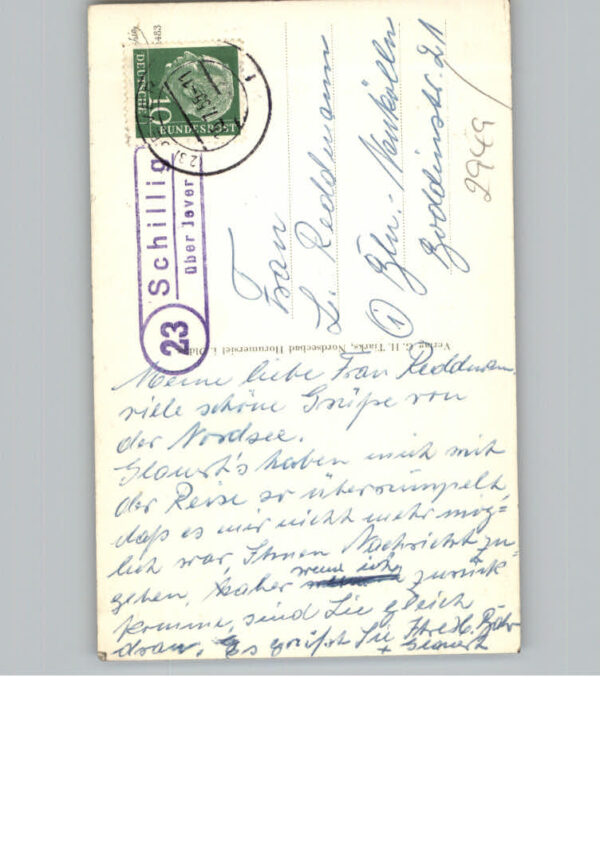 Meine liebe Frau Reddmann,
viele schöne Grüße von
der Nordsee.
Glawert's haben mich mit
der Reise so überrumpelt,
daß es mir nicht mehr mög=
lich war, Ihnen Nachricht zu=
gehen, wenn ich zurück
komme, sind Sie gleich
dran. Es grüßt Sie Ihre
Frau
L. Reddmann
Bln.-Neukölln
Boddinstr. 21
2949
23
Schillig
über Jever
10
DEUTSCHE
BUNDESPOST
Verlag C. H. Tjarks, Nordseebad Horumersiel i. Oldb
483